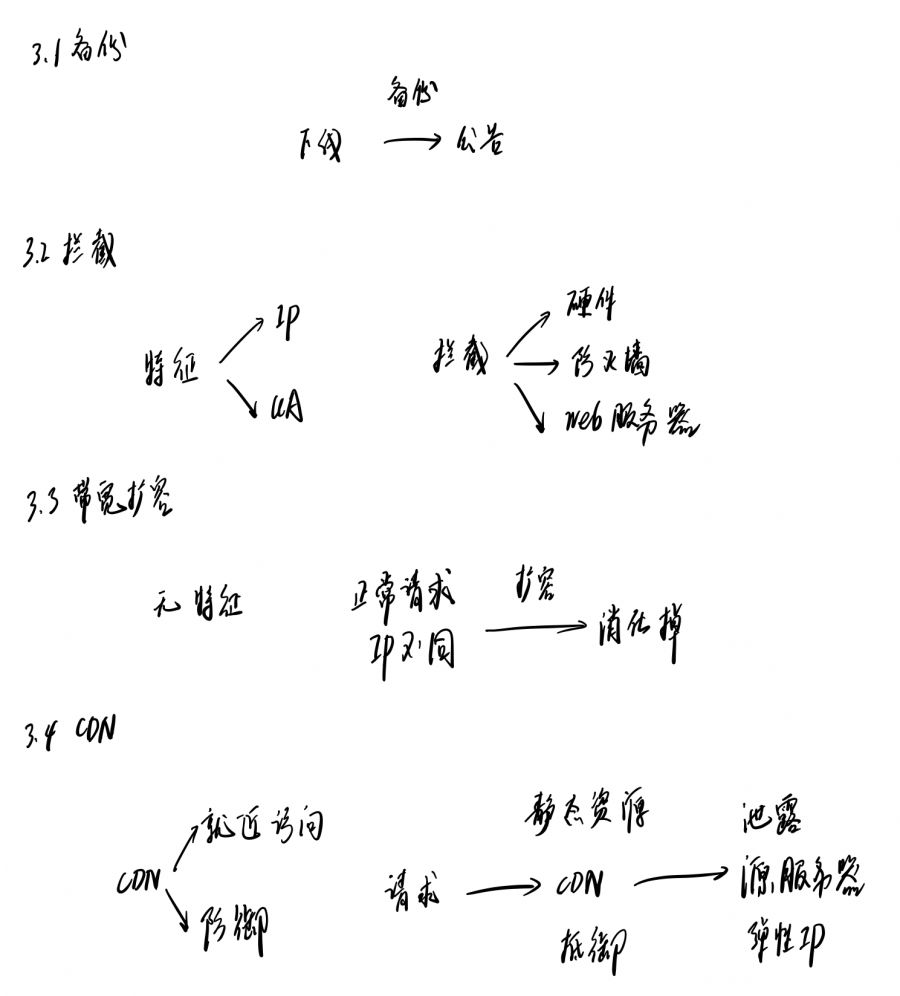 3.1 备份
备份
下线 → 公告
3.2 拦截
特征
IP
UA
拦截
硬件
防火墙
web服务器
3.3 带宽扩容
无特征
正常请求
IP不同
扩容
消化掉
3.4 CDN
CDN
就近访问
防御
请求
静态资源
CDN
抵御
泄露
源服务器
弹性IP